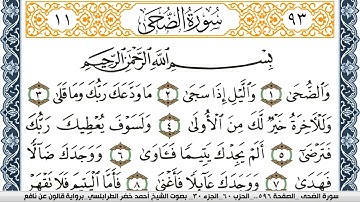 ٩٣ سُورَةُ الضُّحَىٰ ١١
بِسْمِ اللَّهِ الرَّحْمَٰنِ الرَّحِيمِ
وَالضُّحَىٰ ١ وَالَّيْلِ إِذَا سَجَىٰ ٢ مَا وَدَّعَكَ رَبُّكَ وَمَا قَلَىٰ ٣
وَلَلْأَخِرَةُ خَيْرٌ لَّكَ مِنَ الْأُولَىٰ ٤ وَلَسَوْفَ يُعْطِيكَ رَبُّكَ
فَتَرْضَىٰ ٥ أَلَمْ يَجِدْكَ يَتِيمًا فَـَٔاوَىٰ ٦ وَوَجَدَكَ ضَآلًّا
فَهَدَىٰ ٧ وَوَجَدَكَ عَآئِلًا فَأَغْنَىٰ ٨ فَأَمَّا الْيَتِيمَ فَلَا تَقْهَرْ
سورة الضحى _ الصفحة ٥٩٦ .. الحزب ٦٠ . الجزء ٣٠ . بصوت الشيخ أحمد خضر الطرابلسي برواية قالون عن نافع